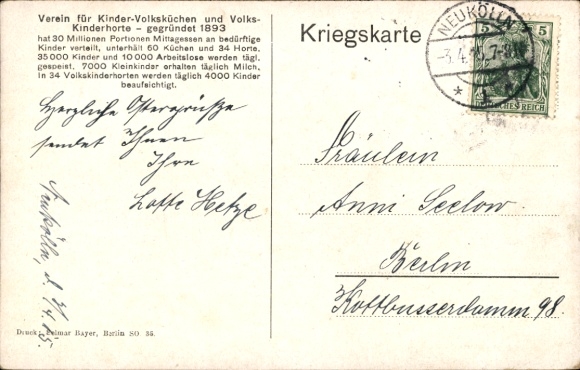 Verein für Kinder-Volksküchen und Volks-
Kinderhorte – gegründet 1893
hat 30 Millionen Portionen Mittagessen an bedürftige
Kinder verteilt, unterhält 60 Küchen und 34 Horte,
35000 Kinder und 10000 Arbeitslose werden tägl.
gespeist, 7000 Kleinkinder erhalten täglich Milch,
In 34 Volkskinderhorten werden täglich 4000 Kinder
beaufsichtigt.
Herzliche Ostergrüße
sendet Ihnen
Ihre
Lotte Hetze
Neukölln, d. 3/4.15.
Druck: Selmar Bayer, Berlin SO 36.
Kriegskarte
NEUKÖLLN
-3.4. 7-8
5 5
DEUTSCHES REICH
Fräulein
Anni Seelow
Berlin
Kottbusserdamm 98.